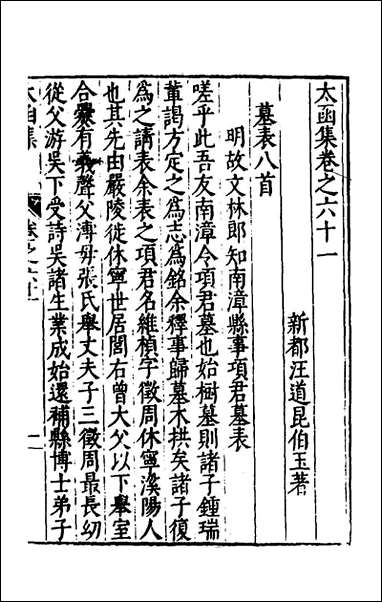 太函集卷之六十一
新都汪道昆伯玉著
墓表八首
明故文林郎知南漳縣事項君墓表
嗟乎此吾友南漳令項君墓也始樹墓則諸子鍾瑞
董謁方定之為志為銘余釋事歸墓木拱矣諸子復
為之請表余表之項君名維楨字徵周休寧溪陽人
也其先由嚴陵徙休寧世居閭右曾大父以下舉室
合爨有義聲父溥毋張氏舉丈夫子三徵周最長幼
從父游吳下受詩吳諸生業成始還補縣博士弟子
太函集
卷之六十一
一